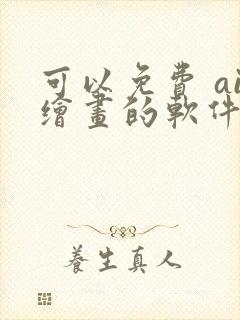 可以免費 ai
繪畫的軟件
養生真人